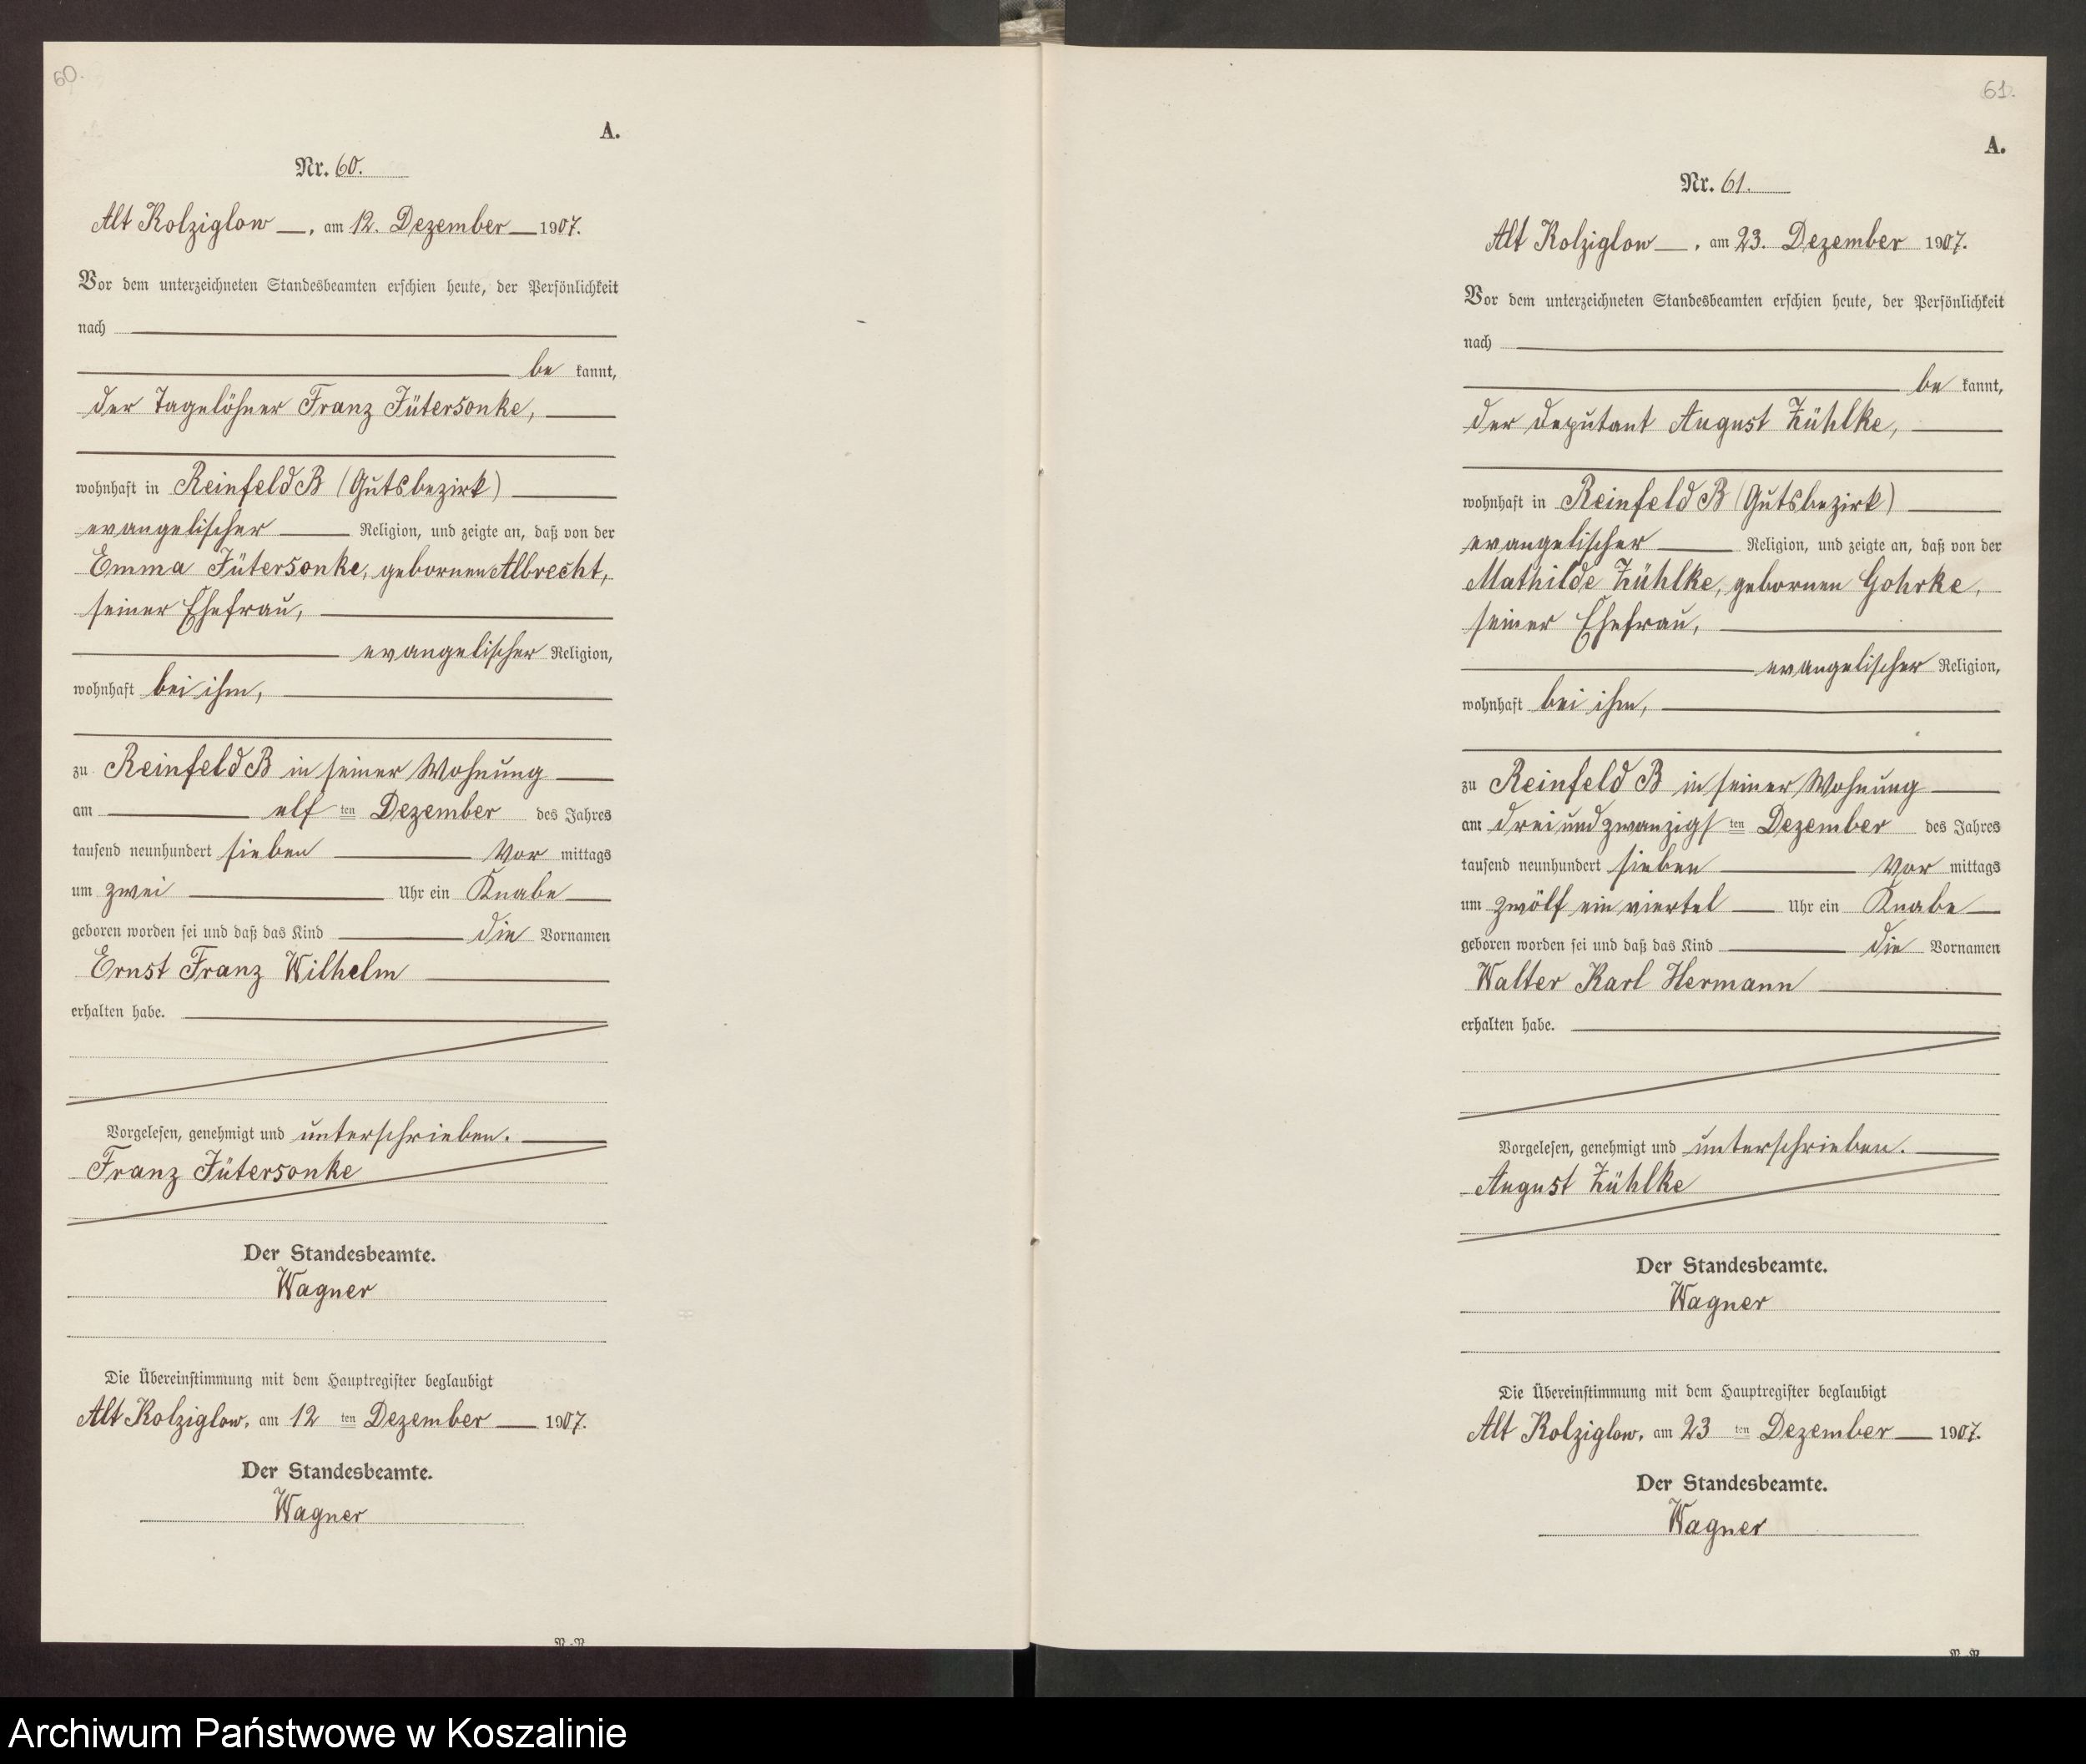 60.
A.
Nr. 60.
Alt Kolziglow, am 12. Dezember 1907.
Vor dem unterzeichneten Standesbeamten erschien heute, der Persönlichkeit
nach
be kannt,
der Tagelöhner Franz Jütersonke,
wohnhaft in Reinfeld B (Gutsbezirk)
evangelischer Religion, und zeigte an, daß von der
Emma Jütersonke, gebornen Albrecht,
seiner Ehefrau,
evangelischer Religion,
wohnhaft bei ihm,
zu Reinfeld B in seiner Wohnung
am elf ten Dezember des Jahres
tausend neunhundert sieben Vor mittags
um zwei Uhr ein Knabe
geboren worden sei und daß das Kind die Vornamen
Ernst Franz Wilhelm
erhalten habe.
Vorgelesen, genehmigt und unterschrieben.
Franz Jütersonke
Der Standesbeamte.
Wagner
Die Übereinstimmung mit dem Hauptregister beglaubigt
Alt Kolziglow, am 12 ten Dezember 1907.
Der Standesbeamte.
Wagner
61.
A.
Nr. 61.
Alt Kolziglow, am 23. Dezember 1907.
Vor dem unterzeichneten Standesbeamten erschien heute, der Persönlichkeit
nach
be kannt,
der Deputant August Zühlke,
wohnhaft in Reinfeld B (Gutsbezirk)
evangelischer Religion, und zeigte an, daß von der
Mathilde Zühlke, gebornen Gohrke,
seiner Ehefrau,
evangelischer Religion,
wohnhaft bei ihm,
zu Reinfeld B in seiner Wohnung
am dreiundzwanzigs ten Dezember des Jahres
tausend neunhundert sieben Vor mittags
um zwölf ein viertel Uhr ein Knabe
geboren worden sei und daß das Kind die Vornamen
Walter Karl Hermann
erhalten habe.
Vorgelesen, genehmigt und unterschrieben.
August Zühlke
Der Standesbeamte.
Wagner
Die Übereinstimmung mit dem Hauptregister beglaubigt
Alt Kolziglow, am 23 ten Dezember 1907.
Der Standesbeamte.
Wagner
Archiwum Państwowe w Koszalinie